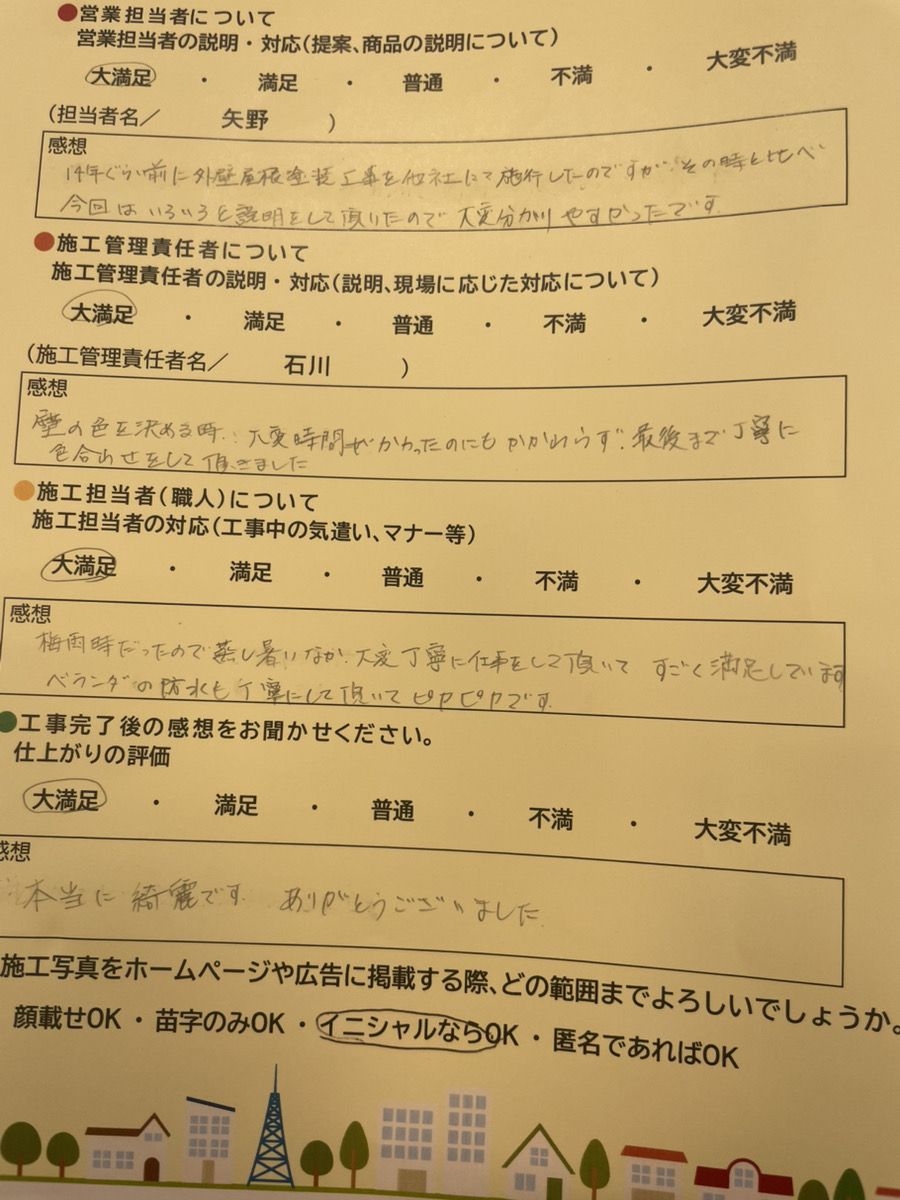 ●営業担当者について
営業担当者の説明・対応(提案、商品の説明について)
大満足 ・ 満足 ・ 普通 ・ 不満 ・ 大変不満
(担当者名／ 矢野 )
感想
14年ぐらい前に外壁屋根塗装工事を他社にて施行したのですが その時と比べ
今回はいろいろと説明をして頂いたので 大変分かりやすかったです。
●施工管理責任者について
施工管理責任者の説明・対応(説明、現場に応じた対応について)
大満足 ・ 満足 ・ 普通 ・ 不満 ・ 大変不満
(施工管理責任者名／ 石川 )
感想
壁の色を決める時、大変時間がかかったのにもかかわらず、最後まで丁寧に
色合わせをして頂きました
●施工担当者(職人)について
施工担当者の対応(工事中の気遣い、マナー等)
大満足 ・ 満足 ・ 普通 ・ 不満 ・ 大変不満
感想
梅雨時だったので蒸し暑いなか、大変丁寧に仕事をして頂いて すごく満足しています
ベランダの防水も丁寧にして頂いて ピカピカです。
●工事完了後の感想をお聞かせください。
仕上がりの評価
大満足 ・ 満足 ・ 普通 ・ 不満 ・ 大変不満
感想
本当に綺麗です。 ありがとうございました
施工写真をホームページや広告に掲載する際、どの範囲までよろしいでしょうか。
顔載せOK ・ 苗字のみOK ・ イニシャルならOK ・ 匿名であればOK